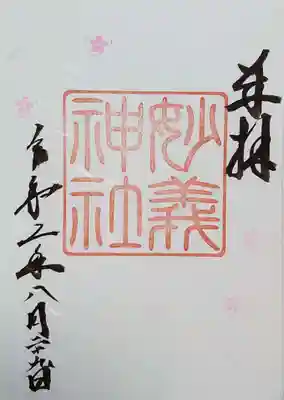 奉拝
妙義
神社
令和二年八月二十九日